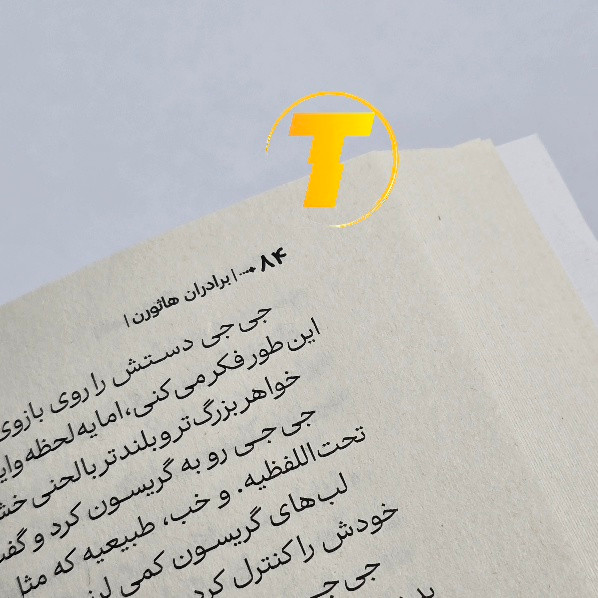 T
۸۴ | برادران هاثورن |
جی‌جی دستش را روی بازوی
این‌طور فکر می‌کنی، اما یه لحظه وای
خواهر بزرگ‌تر و بلندتر با لحنی خش
جی‌جی رو به گریسون کرد و گفت
تحت‌اللفظیه. و خب، طبیعیه که مثل
لب‌های گریسون کمی لرز
خودش را کنترل کرد
جی‌جی